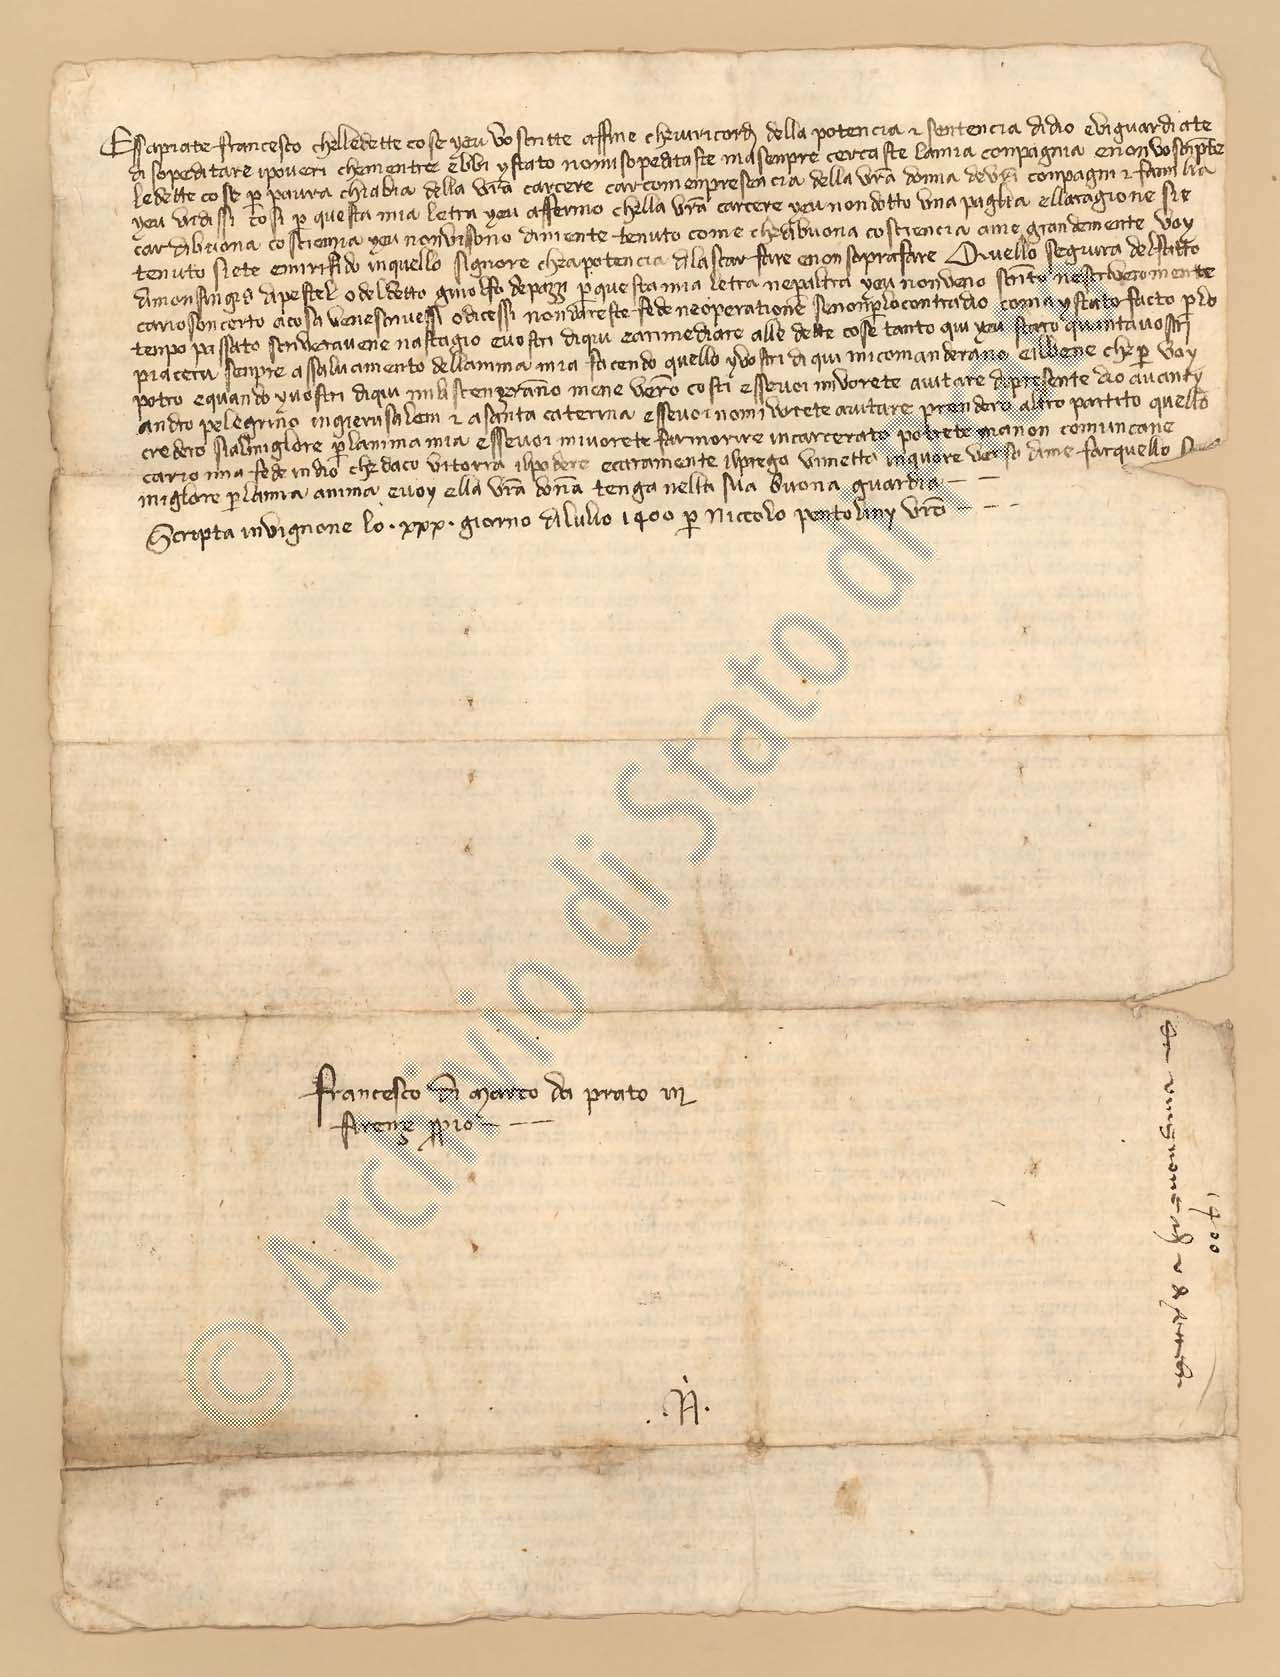 Essapiate francesco chelledette cose yeu vo scritte affine chevvricordi della potencia & sentencia didio evi guardiate
di sopeditare ipoveri chementre ebbi ystato nonmi sopeditaste ma senpre cercaste lamia compagnia enon vo scripte
ledette cose p paura chiabia della vra carcere car comempresencia della vra donna de vri compagni & familia
yeu vi dissi cosi p questa mia letra yeu affermo chella vra carcere yeu non dotto una paglia ellaragione sie
car dibuona co sciencia yeu nonvi sono dimente tenuto come che dibuona co sciencia ame grandemente voy
tenuto siete emi rifido inquello signore chea potencia di lascar fare enon soprafare Quello seguira del fatto
di monsingn di pestel o del detto guiolfo de pazzi p questa mia letra nepaltra yeu nonveno scrito ne scrivero mente
cario son certo acosa vene scrivessi o dicessi non dareste fede ne operatione se non plo contradio coma ystato facto plo
tempo passato scriveravene nastagio evostri diqui earimediare alle dette cose tanto qui yeu staro quantavostri
piacera senpre assalvamento dellanima mia facendo quello yvostri di qui mi comanderano eilbene che p voy
potro equando yvostri diqui mi lascengeranno mene verro costi essevoi mi vorete aiutare dipresente dio avanti
andro pelegrino ingierusalem & asanta caterina essevoi nomi vorete aiutare prendero altro partito quello
credero sialmiglore planima mia essevoi mi vorete far morire incarcerato potrete manon comuncane
cario mia fede indio che daco vi torra ilpodere ecaramente ilprego vimetta inquore verso dime far quello
miglore plamia anima evoy ella vra donna tenga nella sua buona guardia
Scripta invignone lo . xxx . giorno di lulio 1400 p Niccolo pentolini vro
Francesco di Marco da prato in
firenze ppio
.N.
da vingnone
1400
© Archivio di Stato di